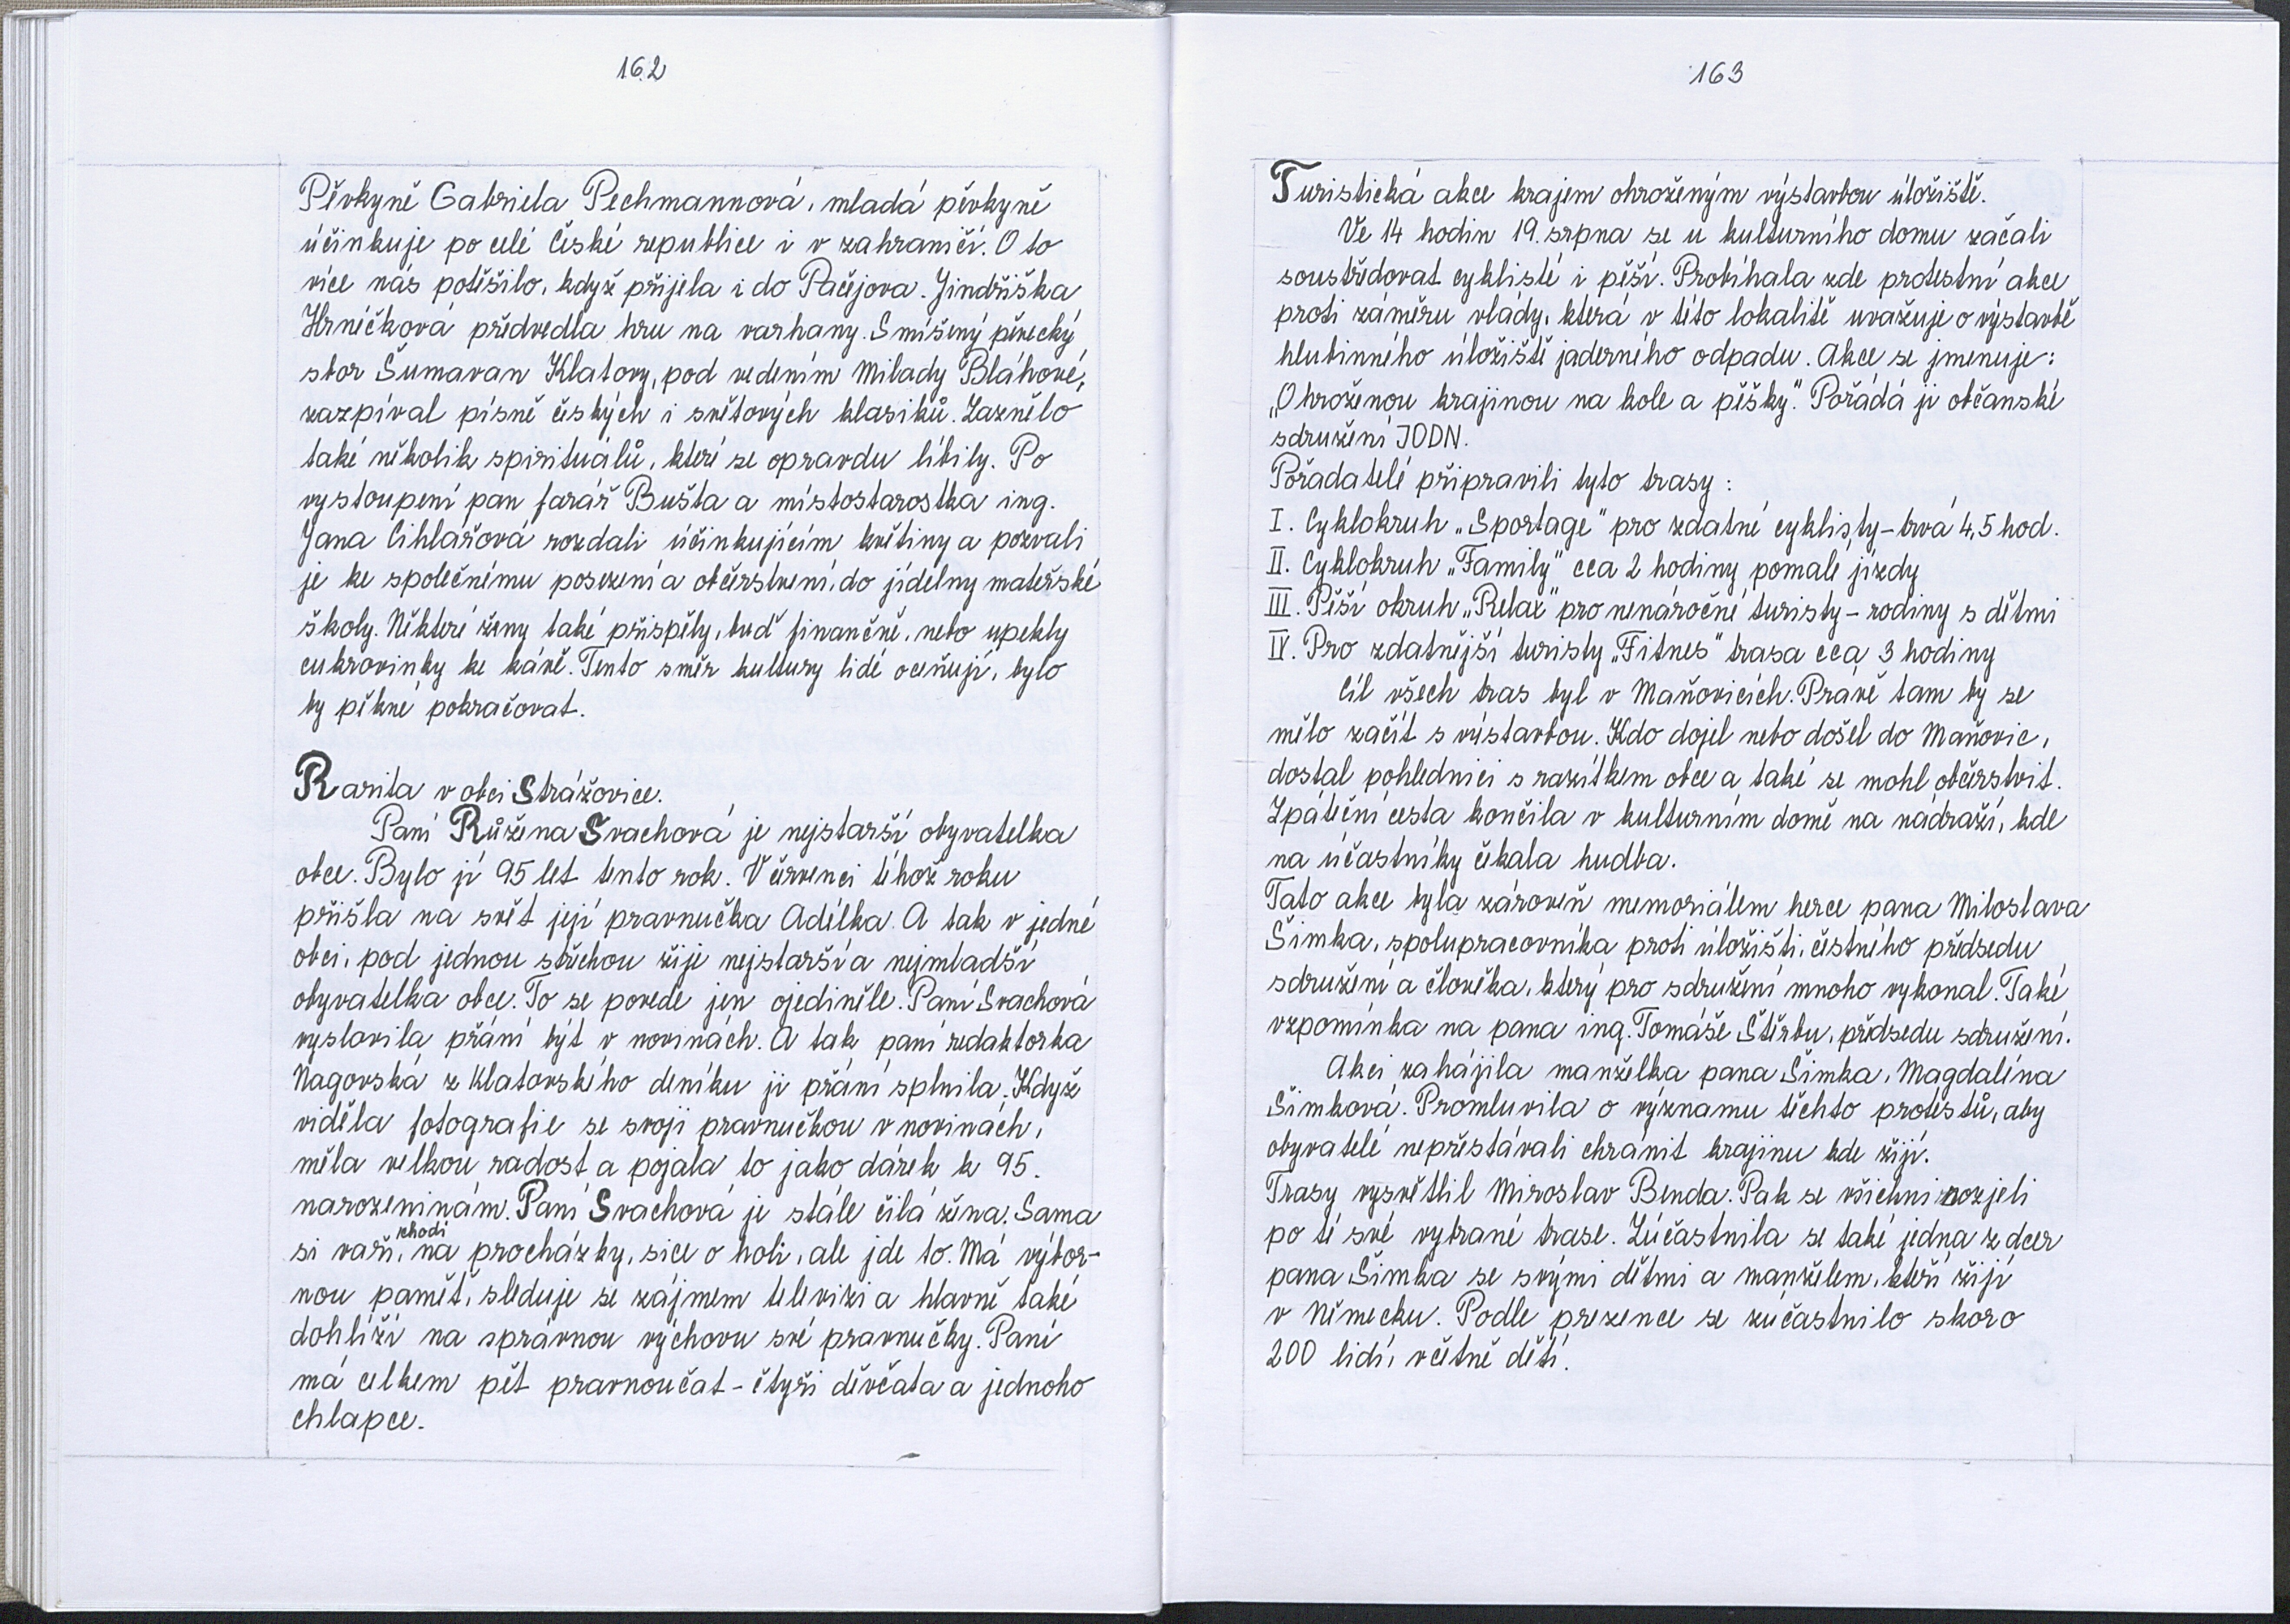 162
Pěvkyně Gabriela Pechmannová, mladá pěvkyně
účinkuje po celé České republice i v zahraničí. O to
více nás potěšilo, když přijela i do Pačejova. Jindřiška
Hrnéčková předvedla hru na varhany. Smíšený pěvecký
sbor Šumavan Klatovy, pod vedením Milady Bláhové,
zazpíval písně českých i světových klasiků. Zaznělo
také několik spirituálů, které se opravdu líbily. Po
vystoupení pan farář Bušta a místostarostka ing.
Jana Cihlářová rozdali účinkujícím květiny a pozvali
je ke společnému posezení a občerstvení, do jídelny mateřské
školy. Některé ženy také přispěly, buď finančně, nebo upekly
cukrovinky ke kávě. Tento směr kultury lidé oceňují, bylo
by pěkné pokračovat.
Rarita v obci Strážovice.
Paní Růžena Svachová je nejstarší obyvatelka
obce. Bylo jí 95 let tento rok. V červenci téhož roku
přišla na svět její pravnučka Adélka. A tak v jedné
obci, pod jednou střechou žije nejstarší a nejmladší
obyvatelka obce. To se povede jen ojediněle. Paní Svachová
vyslovila přání být v novinách. A tak paní redaktorka
Nagovská z Klatovského deníku jí přání splnila. Když
viděla fotografie se svojí pravnučkou v novinách,
měla velkou radost a pojala to jako dárek k 95.
narozeninám. Paní Svachová je stále čilá žena. Sama
si vaří, chodí na procházky, sice o holi, ale jde to. Má výbor-
nou paměť, sleduje se zájmem televizi a hlavně také
dohlíží na správnou výchovu své pravnučky. Paní
má celkem pět pravnoučat - čtyři děvčata a jednoho
chlapce.
163
Turistická akce krajem ohroženým výstavbou úložiště.
Ve 14 hodin 19. srpna se u kulturního domu začali
soustřeďovat cyklisté i pěší. Probíhala zde protestní akce
proti záměru vlády, která v této lokalitě uvažuje o výstavbě
hlubinného úložiště jaderného odpadu. Akce se jmenuje:
„Ohroženou krajinou na kole a pěšky". Pořádá ji občanské
sdružení JODN.
Pořadatelé připravili tyto trasy:
I. Cyklokruh „Sportage" pro zdatné cyklisty - trvá 4,5 hod.
II. Cyklokruh „Family" cca 2 hodiny pomalé jízdy
III. Pěší okruh „Relax" pro nenáročné turisty - rodiny s dětmi
IV. Pro zdatnější turisty „Fitnes" trasa cca 3 hodiny
Cíl všech tras byl v Maňovicích. Právě tam by se
mělo začít s výstavbou. Kdo dojel nebo došel do Maňovic,
dostal pohlednici s razítkem obce a také se mohl občerstvit.
Zpáteční cesta končila v kulturním domě na nádraží, kde
na účastníky čekala hudba.
Tato akce byla zároveň memoriálem herce pana Miloslava
Šimka, spolupracovníka proti úložišti, čestného předsedu
sdružení a člověka, který pro sdružení mnoho vykonal. Také
vzpomínka na pana ing. Tomáše Štěrbu, předsedu sdružení.
Akci zahájila manželka pana Šimka, Magdaléna
Šimková. Promluvila o významu těchto protestů, aby
obyvatelé nepřestávali chránit krajinu kde žijí.
Trasy vysvětlil Miroslav Benda. Pak se všichni rozjeli
po té své vybrané trase. Zúčastnila se také jedna z dcer
pana Šimka se svými dětmi a manželem, kteří žijí
v Německu. Podle prezence se zúčastnilo skoro
200 lidí, včetně dětí.